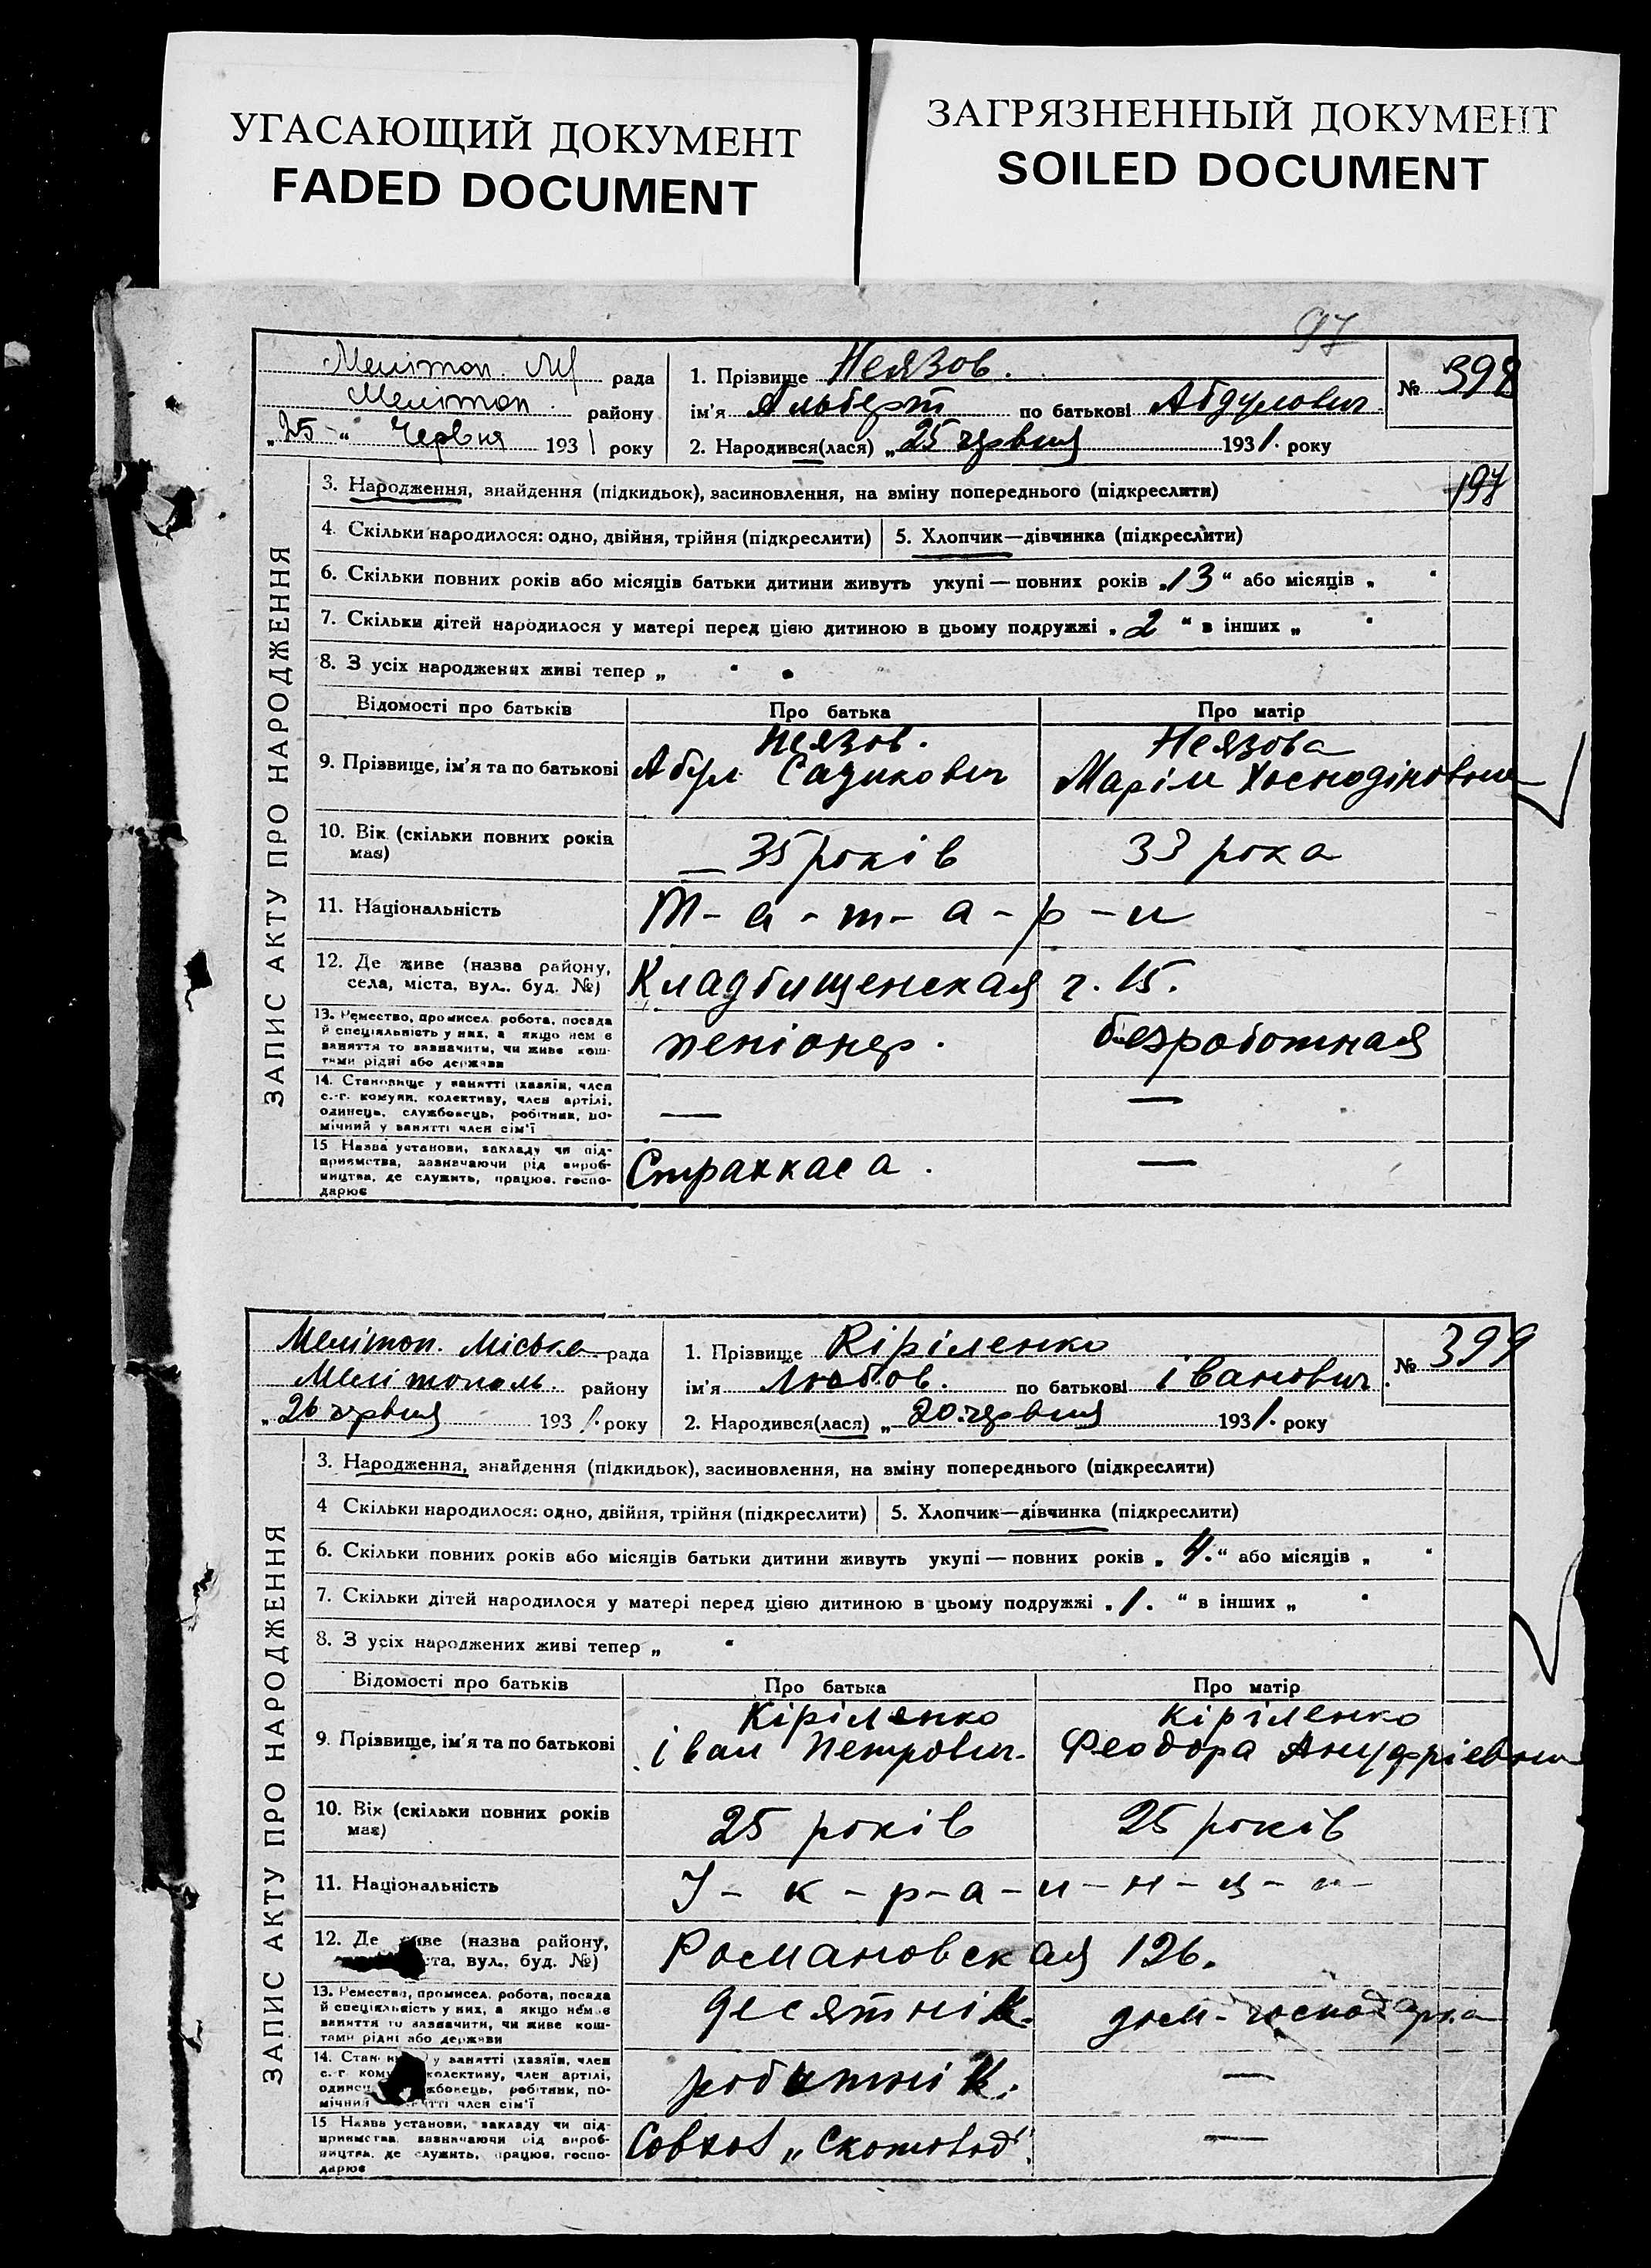 УГАСАЮЩИЙ ДОКУМЕНТ
FADED DOCUMENT
ЗАГРЯЗНЕННЫЙ ДОКУМЕНТ
SOILED DOCUMENT
97
Мелітоп. М рада
Мелітоп. району
„25" Червня 1931 року
1. Прізвище Неязов.
ім'я Альберт по батькові Абдулович.
2. Народився(лася) „25 червня 1931. року
№ 398
197
ЗАПИС АКТУ ПРО НАРОДЖЕННЯ
3. Народження, знайдення (підкидьок), засиновлення, на зміну попереднього (підкреслити)
4. Скільки народилося: одно, двійня, трійня (підкреслити) 5. Хлопчик—дівчинка (підкреслити)
6. Скільки повних років або місяців батьки дитини живуть укупі — повних років „13" або місяців „ "
7. Скільки дітей народилося у матері перед цією дитиною в цьому подружжі „2" в інших „ "
8. З усіх народжених живі тепер „ "
Відомості про батьків Про батька Про матір
9. Прізвище, ім'я та по батькові
Неязов.
Абдул Садикович
Неязова
Маріам
10. Вік (скільки повних років має)
35 років 33 рока
11. Національність
Т-а-т-а-р-и
12. Де живе (назва району, села, міста, вул., буд. №)
Кладбищенская ч. 15.
13. Ремество, промисел, робота, посада
й спеціяльність у них, а якщо нема
заняття то зазначити, чи живе кош-
тами рідні або держави
пеніонер. безработная
14. Становище у занятті (хазяїн, член
с.-г. комуни, колективу, член артілі,
одинець, службовець, робітник, по-
мічний у занятті член сім'ї
— —
15 Назва установи, закладу чи під-
приємства, зазначаючи рід вироб-
ництва, де служить, працює, госпо-
дарює
Страхкаса. —
Мелітоп. Міська рада
Мелітополь. району
„26 червня 1931. року
1. Прізвище Кіріленко
ім'я Любов. по батькові Іванович.
2. Народився(лася) „20. червня 1931. року
№ 399
ЗАПИС АКТУ ПРО НАРОДЖЕННЯ
3. Народження, знайдення (підкидьок), засиновлення, на зміну попереднього (підкреслити)
4 Скільки народилося: одно, двійня, трійня (підкреслити) 5. Хлопчик—дівчинка (підкреслити)
6. Скільки повних років або місяців батьки дитини живуть укупі — повних років „4." або місяців „ "
7. Скільки дітей народилося у матері перед цією дитиною в цьому подружжі „1." в інших „ "
8. З усіх народжених живі тепер „ "
Відомості про батьків Про батька Про матір
9. Прізвище, ім'я та по батькові
Кіріленко
Іван Петрович.
Кіріленко
Феодора Ануфріевна
10. Вік (скільки повних років має)
25 років 25 років
11. Національність
У-к-р-а-и-н-ц-и-
12. Де живе (назва району, ста, вул., буд. №)
Романовская 126.
13. Ремество, промисел, робота, посада
й спеціяльність у них, а якщо нема
заняття то зазначити, чи живе кош-
тами рідні або держави
десятнік. дом-господарка
14. Стан у занятті (хазяїн, член
с.-г. кому колективу, член артілі,
одинец жбовець, робітник, по-
мічний тті член сім'ї
робитнік. —
15 Назва установи, закладу чи під-
приємства, зазначаючи рід вироб-
ництва, де служить, працює, госпо-
дарює
Совхоз „Скотовод". —